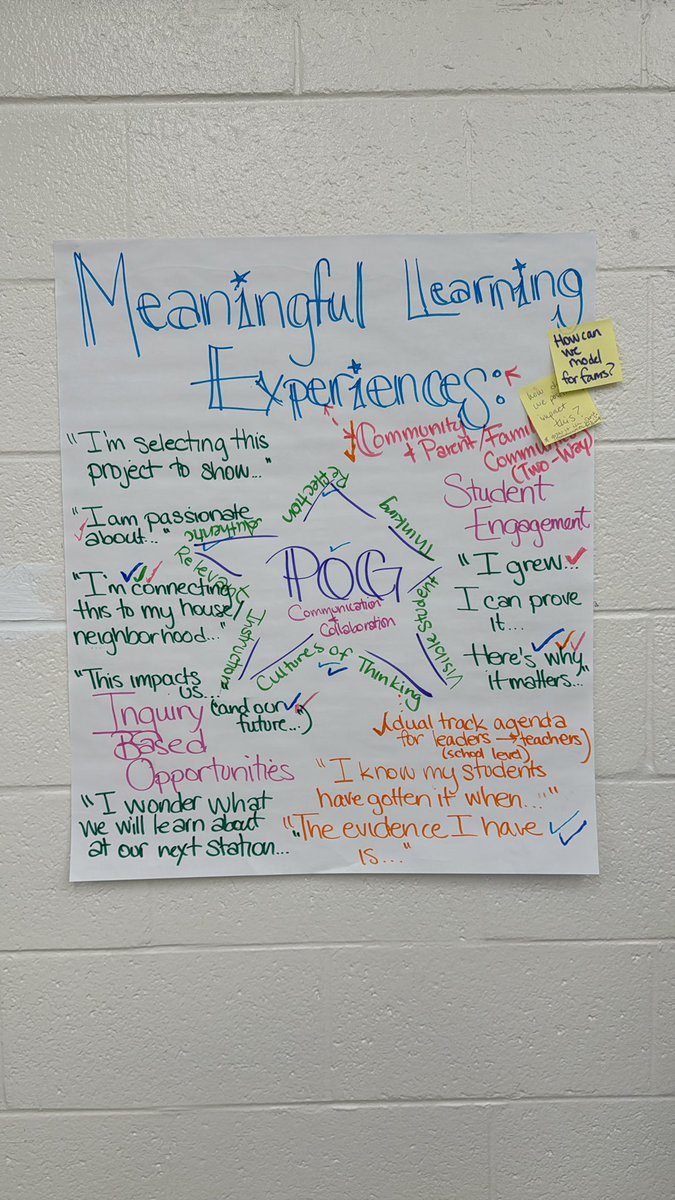 Meaningful Learning
Experiences:
How can
we
model
for fams?
how
we
impact
this?
Community
+ Parent/Family
Communication
(Two-Way)
"I'm selecting this
project to show..."
"I am passionate
about..."
"I'm connecting
this to my house/
neighborhood..."
"This impacts
us...
(and our
future...")
Inquiry
Based
Opportunities
"I wonder what
we will learn about
at our next station...
Reflection
Thinking
Authentic
Relevant
Instruction
Visible Student
Cultures of Thinking
POG
Communication
+
Collaboration
Student
Engagement
"I grew...
I can prove
it...
Here's why
it matters..."
(dual track agenda
for leaders → teachers)
(school level)
"I know my students
have gotten it when..."
"The evidence I have
is..."